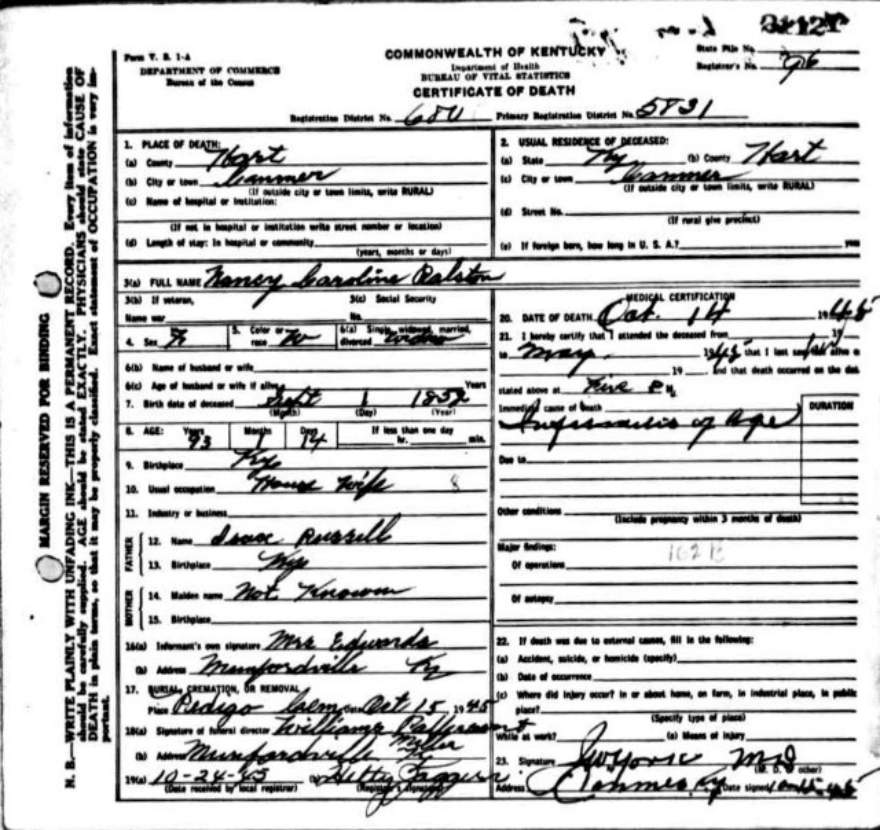 Form V. S. 1-A
DEPARTMENT OF COMMERCE
Bureau of the Census
COMMONWEALTH OF KENTUCKY
Department of Health
BUREAU OF VITAL STATISTICS
CERTIFICATE OF DEATH
State File No.
Registrar's No. 96
Registration District No. 680 Primary Registration District No. 5831
MARGIN RESERVED FOR BINDING
N. B.—WRITE PLAINLY WITH UNFADING INK—THIS IS A PERMANENT RECORD. Every item of information
should be carefully supplied. AGE should be stated EXACTLY. PHYSICIANS should state CAUSE OF
DEATH in plain terms, so that it may be properly classified. Exact statement of OCCUPATION is very im-
portant.
1. PLACE OF DEATH:
(a) County Hart
(b) City or town Cammer
(If outside city or town limits, write RURAL)
(c) Name of hospital or institution:
(If not in hospital or institution write street number or location)
(d) Length of stay: In hospital or community
(years, months or days)
2. USUAL RESIDENCE OF DECEASED:
(a) State Ky (b) County Hart
(c) City or town Cammer
(If outside city or town limits, write RURAL)
(d) Street No.
(If rural give precinct)
(e) If foreign born, how long in U. S. A.?
3(a) FULL NAME Nancy Caroline Ralston
3(b) If veteran,
Name war
3(c) Social Security
No.
4. Sex F
5. Color or
race W
6(a) Single, widowed, married,
divorced
6(b) Name of husband or wife
6(c) Age of husband or wife if alive Years
7. Birth date of deceased Sept 1 1852
(Month) (Day) (Year)
8. AGE: Years Months Days If less than one day
93 1 14 hr. min.
9. Birthplace Ky
10. Usual occupation House Wife 8
11. Industry or business
FATHER
12. Name Isaac Russell
13. Birthplace Ky
MOTHER
14. Maiden name Not Known
15. Birthplace
16(a) Informant's own signature Mrs Edwards
(b) Address Munfordville Ky
17. BURIAL, CREMATION, OR REMOVAL
Place Pedigo Cem Date Oct 15, 1945
18(a) Signature of funeral director Williams
(b) Address Munfordville Ky
19(a) 10-24-45 (b) Hetty
(Date received by local registrar) (Registrar's signature)
MEDICAL CERTIFICATION
20. DATE OF DEATH Oct. 14 1945
21. I hereby certify that I attended the deceased from 19
to May 1945 that I last saw alive on
19 , and that death occurred on the date
stated above at Five P M.
Immediate cause of death DURATION
of Age
Due to
Other conditions
(Include pregnancy within 3 months of death)
Major findings: 162 B
Of operations
Of autopsy
22. If death was due to external causes, fill in the following:
(a) Accident, suicide, or homicide (specify)
(b) Date of occurrence
(c) Where did injury occur? In or about home, on farm, in industrial place, in public
place?
(Specify type of place)
While at work? (e) Means of injury
23. Signature MD
(M. D. or other)
Address Cammer, Ky Date signed